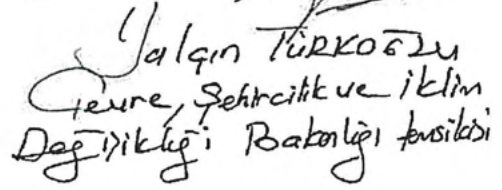 Yalçın TÜRKOĞLU
Çevre, Şehircilik ve iklim
Değişikliği Bakanlığı temsilcisi